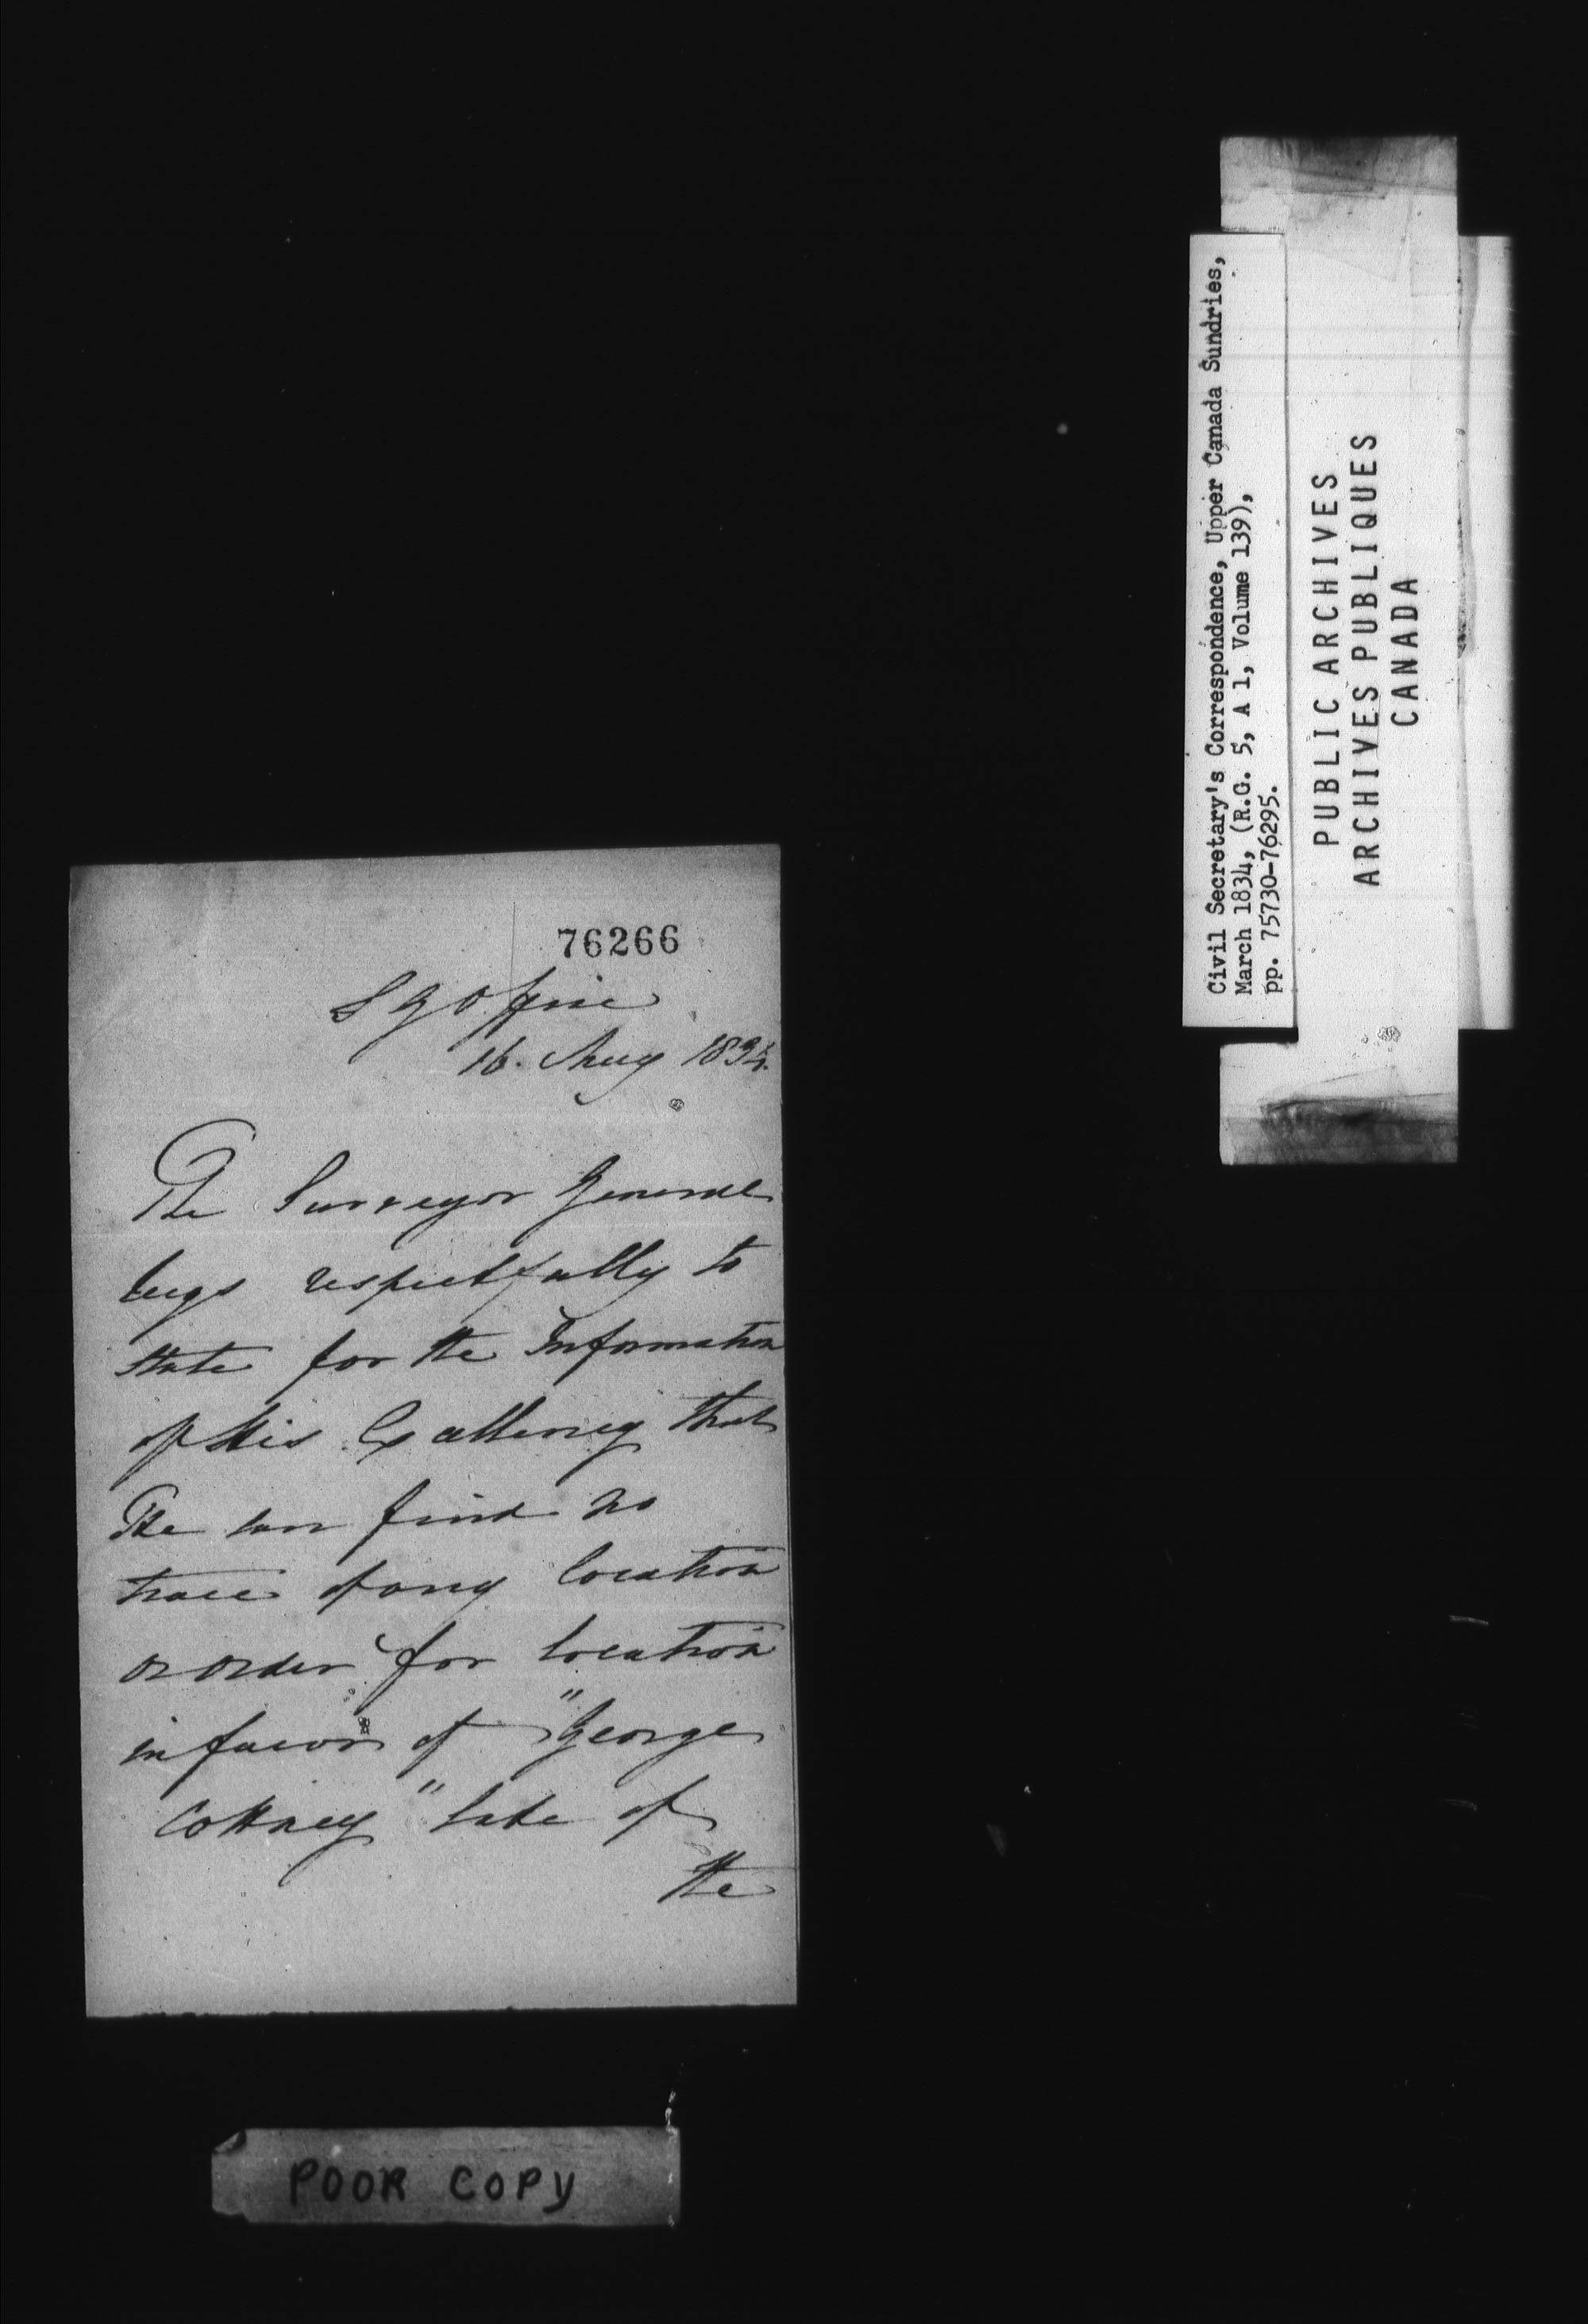 76266
S G Office
16. Aug 1834.
The Surveyor General
begs respectfully to
state for the Information
of His Excellency that
He can find no
trace of any location
or order for location
in favor of "George
Cottney" late of
the
POOR COPY
Civil Secretary's Correspondence, Upper Canada Sundries,
March 1834, (R.G. 5, A 1, Volume 139),
pp. 75730-76295.
PUBLIC ARCHIVES
ARCHIVES PUBLIQUES
CANADA